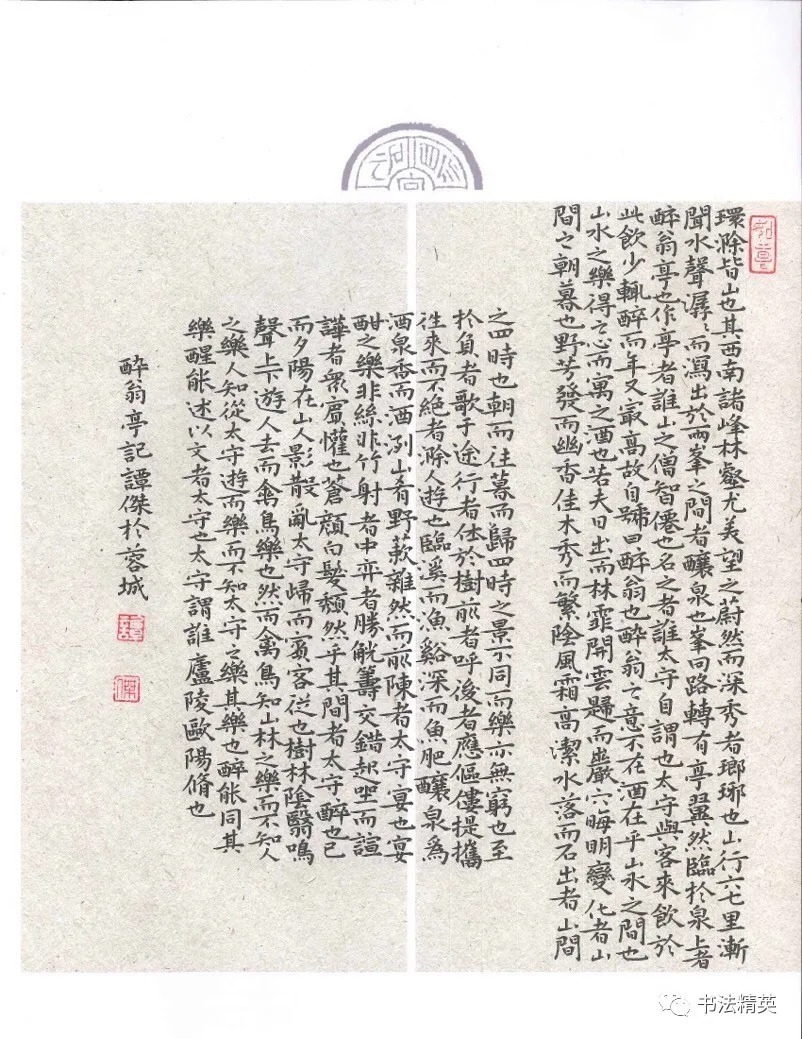 環滁皆山也其西南諸峰林壑尤美望之蔚然而深秀者瑯琊也山行六七里漸
聞水聲潺〻而瀉出於兩峯之間者釀泉也峯回路轉有亭翼然臨於泉上者
醉翁亭也作亭者誰山之僧智僊也名之者誰太守自謂也太守與客來飲於
此飲少輒醉而年又最高故自號曰醉翁也醉翁之意不在酒在乎山水之間也
山水之樂得之心而寓之酒也若夫日出而林霏開雲歸而巖穴晦明變化者山
間之朝暮也野芳發而幽香佳木秀而繁陰風霜高潔水落而石出者山間
之四時也朝而往暮而歸四時之景不同而樂亦無窮也至
於負者歌于途行者休於樹前者呼後者應傴僂提攜
往來而不絕者滁人遊也臨溪而漁谿深而魚肥釀泉為
酒泉香而酒洌山肴野蔌雜然而前陳者太守宴也宴
酣之樂非絲非竹射者中弈者勝觥籌交錯起坐而諠
譁者眾賓懽也蒼顏白髮頹然乎其間者太守醉也已
而夕陽在山人影散亂太守歸而賓客從也樹林陰翳鳴
聲上下遊人去而禽鳥樂也然而禽鳥知山林之樂而不知人
之樂人知從太守遊而樂而不知太守之樂其樂也醉能同其
樂醒能述以文者太守也太守謂誰廬陵歐陽脩也
醉翁亭記譚傑於蓉城
书法精英